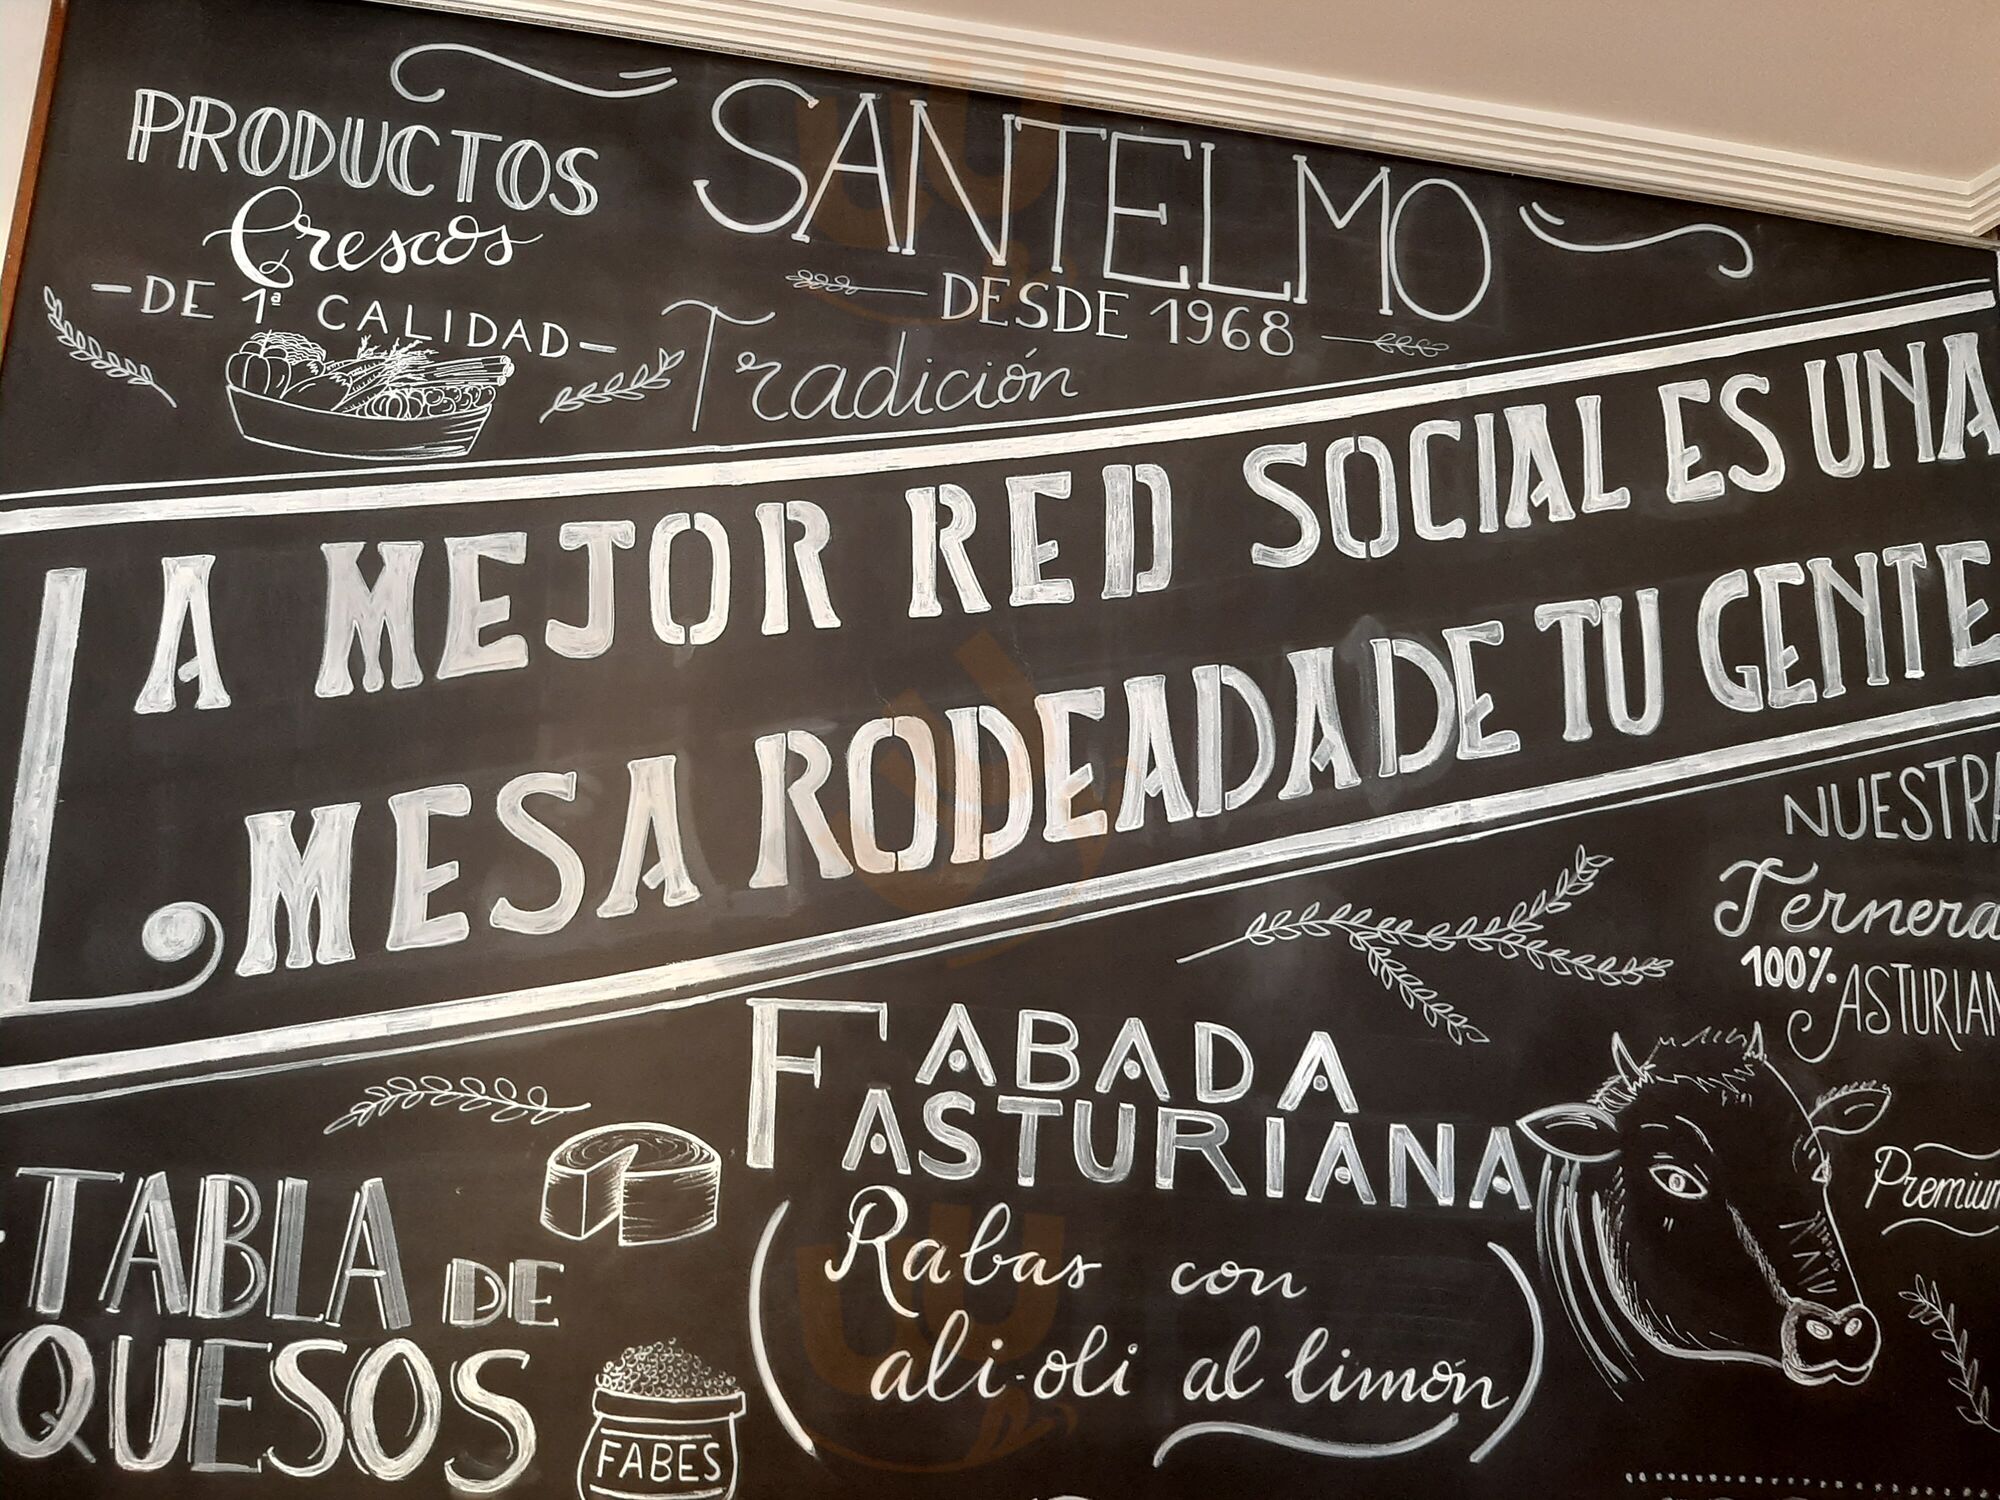 PRODUCTOS
frescos
-DE 1ª CALIDAD-
SANTELMO
DESDE 1968
Tradición
LA MEJOR RED SOCIAL ES UNA
MESA RODEADA DE TU GENTE
NUESTRA
Ternera
100%
ASTURIAN
Premium
FABADA
ASTURIANA
(Rabas con
ali-oli al limón)
TABLA DE
QUESOS
FABES